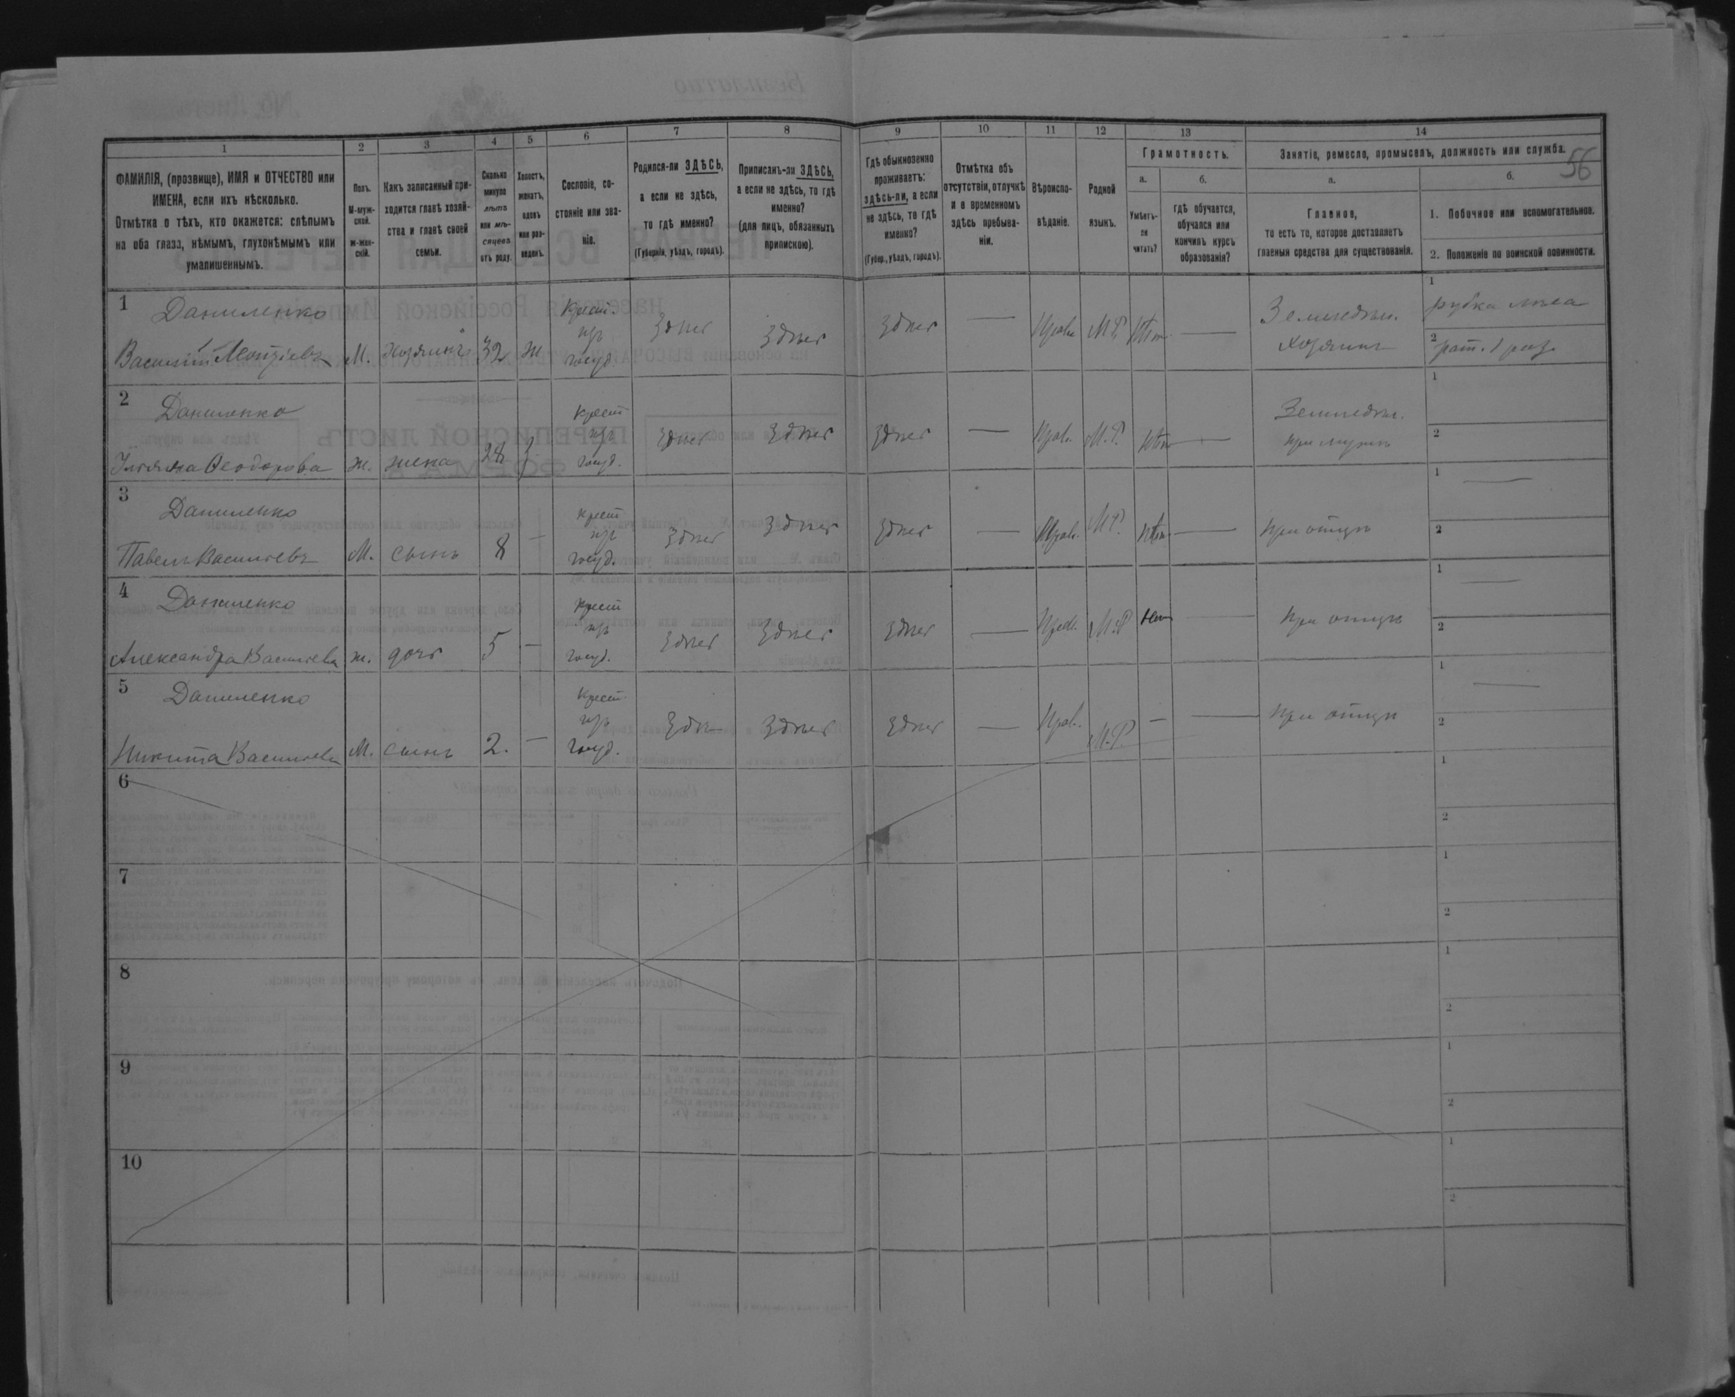 56
1 2 3 4 5 6 7 8 9 10 11 12 13 14
ФАМИЛІЯ, (прозвище), ИМЯ и ОТЧЕСТВО или
ИМЕНА, если ихъ нѣсколько.
Отмѣтка о тѣхъ, кто окажется: слѣпымъ
на оба глаза, нѣмымъ, глухонѣмымъ или
умалишеннымъ.
Полъ.
М-муж-
ской.
ж-жен-
скій.
Какъ записанный при-
ходится главѣ хозяй-
ства и главѣ своей
семьи.
Сколько
минуло
лѣтъ
или мѣ-
сяцевъ
отъ роду.
Холостъ,
женатъ,
вдовъ
или раз-
веденъ.
Сословіе, со-
стояніе или зва-
ніе.
Родился-ли ЗДѢСЬ,
а если не здѣсь,
то гдѣ именно?
(Губернія, уѣздъ, городъ).
Приписанъ-ли ЗДѢСЬ,
а если не здѣсь, то гдѣ
именно?
(для лицъ, обязанныхъ
припискою).
Гдѣ обыкновенно
проживаетъ:
здѣсь-ли, а если
не здѣсь, то гдѣ
именно?
(Губер., уѣздъ, городъ).
Отмѣтка объ
отсутствіи, отлучкѣ
и о временномъ
здѣсь пребыва-
ніи.
Вѣроиспо-
вѣданіе.
Родной
языкъ.
Грамотность.
а.
Умѣетъ-
ли
читать?
б.
гдѣ обучается,
обучался или
кончилъ курсъ
образованія?
Занятіе, ремесло, промыселъ, должность или служба.
а.
Главное,
то есть то, которое доставляетъ
главныя средства для существованія.
б.
1. Побочное или вспомогательное.
2. Положеніе по воинской повинности.
1 Даниленко
Василій М. хозяинъ 32 ж Крест. из госуд. Здѣсь Здѣсь Здѣсь — Прав. М.Р. Нѣт — Земледѣл. хозяинъ
1 рубка лѣса
2 рат. 1 раз.
2 Даниленко
Ульяна Ѳеодорова ж. жена 28 з Крест из госуд. Здѣсь Здѣсь Здѣсь — Прав. М.Р. нѣт — Земледѣл. при мужѣ
1
2
3 Даниленко
Павелъ Васильевъ М. сынъ 8 — Крест из госуд. Здѣсь Здѣсь Здѣсь — Прав. М.Р. нѣт — при отцѣ
1 —
2
4 Даниленко
Александра Васильева ж. дочь 5 — Крест из госуд. Здѣсь Здѣсь Здѣсь — Прав. М.Р. нѣт — при отцѣ
1 —
2
5 Даниленко
Никита Васильевъ М. сынъ 2. — Крест. из госуд. Здѣсь Здѣсь Здѣсь — Прав. М.Р. — — при отцѣ
1 —
2
6
1
2
7
1
2
8
1
2
9
1
2
10
1
2